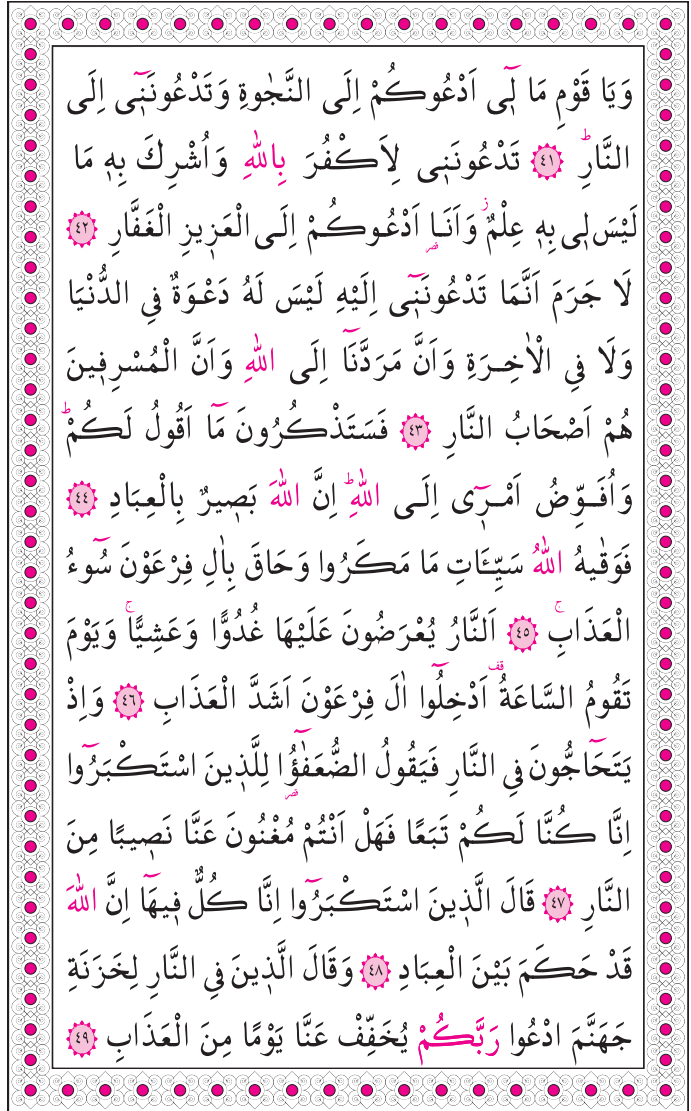 وَيَا قَوْمِ مَا لٖٓي اَدْعُوكُمْ اِلَى النَّجٰوةِ وَتَدْعُونَنٖٓي اِلَى
النَّارِؕ ﴿٤١﴾ تَدْعُونَنٖي لِاَكْفُرَ بِاللّٰهِ وَاُشْرِكَ بِهٖ مَا
لَيْسَ لٖي بِهٖ عِلْمٌؗ وَاَنَا۬ اَدْعُوكُمْ اِلَى الْعَزٖيزِ الْغَفَّارِ ﴿٤٢﴾
لَا جَرَمَ اَنَّمَا تَدْعُونَنٖٓي اِلَيْهِ لَيْسَ لَهُ دَعْوَةٌ فِي الدُّنْيَا
وَلَا فِي الْاٰخِرَةِ وَاَنَّ مَرَدَّنَٓا اِلَى اللّٰهِ وَاَنَّ الْمُسْرِفٖينَ
هُمْ اَصْحَابُ النَّارِ ﴿٤٣﴾ فَسَتَذْكُرُونَ مَٓا اَقُولُ لَكُمْؕ
وَاُفَوِّضُ اَمْرٖٓي اِلَى اللّٰهِؕ اِنَّ اللّٰهَ بَصٖيرٌ بِالْعِبَادِ ﴿٤٤﴾
فَوَقٰيهُ اللّٰهُ سَيِّـَٔاتِ مَا مَكَرُوا وَحَاقَ بِاٰلِ فِرْعَوْنَ سُٓوءُ
الْعَذَابِۚ ﴿٤٥﴾ اَلنَّارُ يُعْرَضُونَ عَلَيْهَا غُدُوًّا وَعَشِيًّاۚ وَيَوْمَ
تَقُومُ السَّاعَةُ۠ اَدْخِلُٓوا اٰلَ فِرْعَوْنَ اَشَدَّ الْعَذَابِ ﴿٤٦﴾ وَاِذْ
يَتَحَٓاجُّونَ فِي النَّارِ فَيَقُولُ الضُّعَفٰٓؤُ۬ا لِلَّذٖينَ اسْتَكْبَرُٓوا
اِنَّا كُنَّا لَكُمْ تَبَعًا فَهَلْ اَنْتُمْ مُغْنُونَ عَنَّا نَصٖيبًا مِنَ
النَّارِ ﴿٤٧﴾ قَالَ الَّذٖينَ اسْتَكْبَرُٓوا اِنَّا كُلٌّ فٖيهَٓا اِنَّ اللّٰهَ
قَدْ حَكَمَ بَيْنَ الْعِبَادِ ﴿٤٨﴾ وَقَالَ الَّذٖينَ فِي النَّارِ لِخَزَنَةِ
جَهَنَّمَ ادْعُوا رَبَّكُمْ يُخَفِّفْ عَنَّا يَوْمًا مِنَ الْعَذَابِ ﴿٤٩﴾